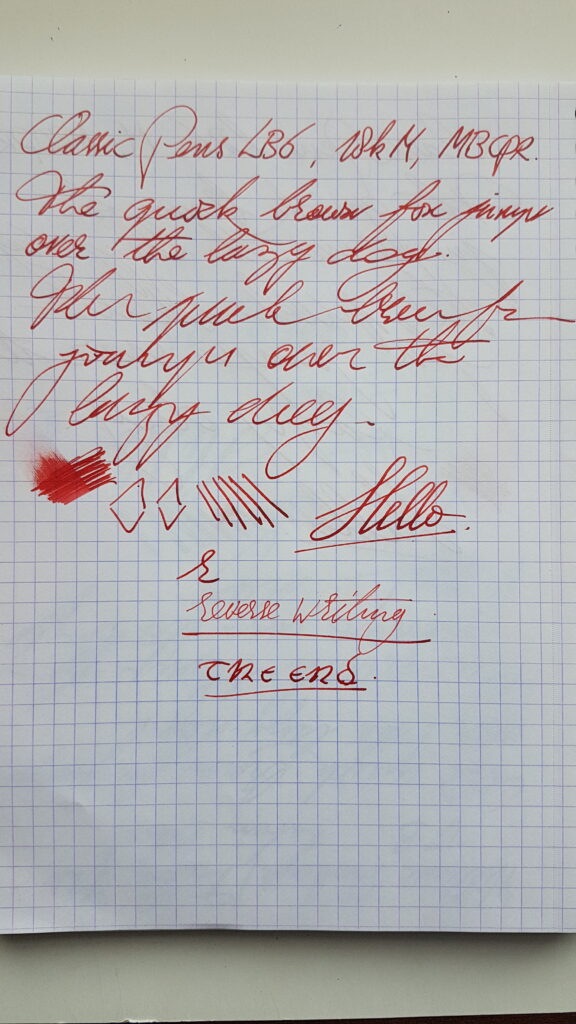 Classic Pens LB6, 18k M, MBCPR.
The quick brown fox jumps
over the lazy dog.
The quick brown fox
jumps over the
lazy dog.
Hello.
r
reverse writing
THE END.